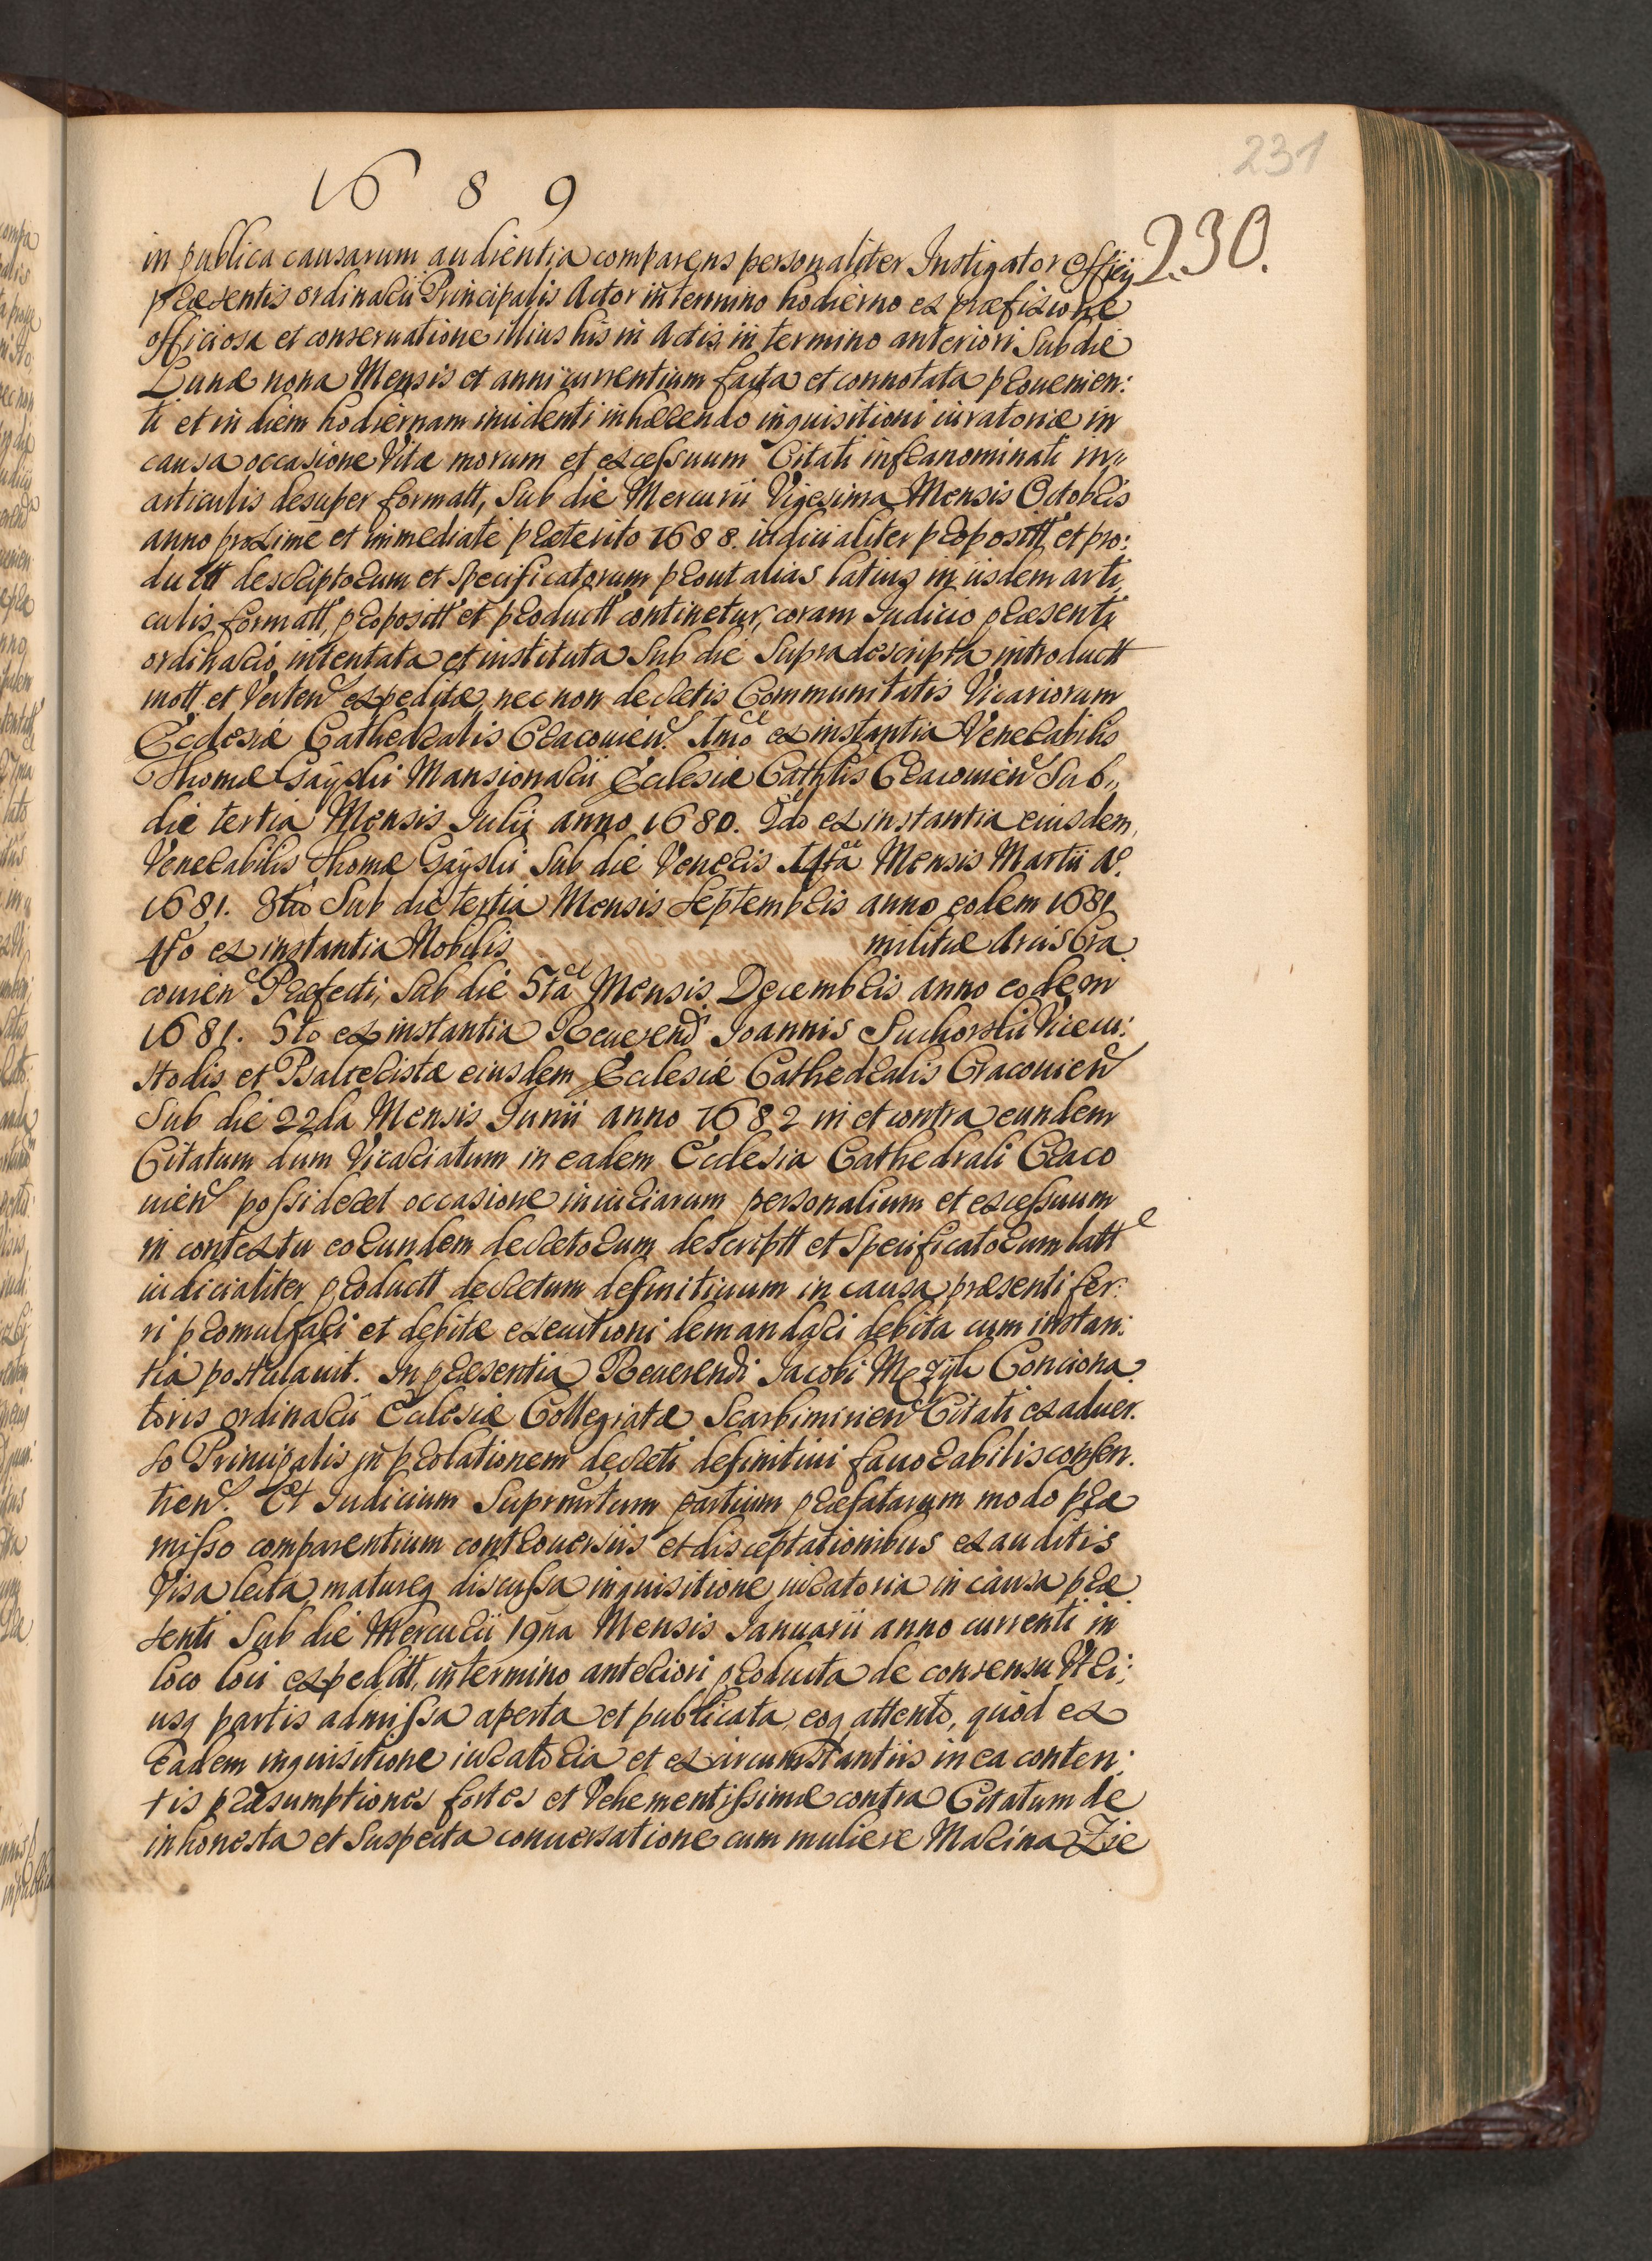 231
1689
230.
in publica causarum audientia comparens personaliter Instigator Officij
præsentis ordinarii Principalis Actor in termino hodierno ex præfixione
officiosa et conseruatione illius his in Actis in termino anteriori Sub die
Lunæ nona Mensis et anni currentium facta et connotata prouenien:
ti et in diem hodiernam incidenti inhærendo inquisitioni iuratoriæ in
causa occasione Vitæ morum et excessuum Citati infranominati in„
articulis desuper formatt, Sub die Mercurii Vigesima Mensis Octobris
anno proxime et immediate præterito 1688. iudicialiter propositt et pro:
ductt descriptorum et Specificatorum prout alias latius in iisdem arti
culis formatt, propositt et productt continetur, coram Iudicio præsenti
ordinario intentata et instituta Sub die Supradescripta introductt
mott et Verten expeditæ, nec non decretis Communitatis Vicariorum
Ecclesiæ Cathedralis Cracouien. Imo ex instantia Venerabilis
Thomæ Gayski Mansionarii Ecclesiæ Cathlis Cracouien Sub„
die tertia Mensis Iulii anno 1680. 2do ex instantia eiusdem
Venerabilis Thomæ Gayski Sub die Veneris 14ta Mensis Martii Ao.
1681. 3tio Sub die tertia Mensis Septembris anno eodem 1681
4to ex instantia Nobilis militiæ Arcis Cra
couien Præfecti, Sub die 5ta Mensis Decembris anno eodem
1681. 5to ex instantia Reuerend Joannis Suchorski Vicecu:
stodis et Psalteristæ eiusdem Ecclesiæ Cathedralis Cracouien
Sub die 22da Mensis Iunii anno 1682 in et contra eundem
Citatum dum Vicariatum in eadem Ecclesia Cathedrali Craco
uien possideret occasione iniuriarum personalium et excessuum
in contextu eorundem decretorum descriptt et Specificatorum latt
iudicialiter productt decretum definitiuum in causa præsenti fer:
ri promulgari et debitæ executioni demandari debita cum instan:
tia postulauit. In præsentia Reuerendi Jacobi Conciona
toris ordinarii Ecclesiæ Collegiatæ Scarbimirien Citati ex aduer.
so Principalis in prolationem decreti definitiui fauorabilis consen.
tien. Et Iudicium partium præfatarum modo præ
misso comparentium controuersiis et disceptationibus exauditis
Visa lecta, matureq discussa inquisitione iuratoria in causa præ
senti Sub die Mercurii 19na Mensis Ianuarii anno currenti in
loco loci expeditt, in termino anteriori producta de consensu Vtri:
usq partis admissa aperta et publicata, eoq attento, quod ex
eadem inquisitione iuratoria et ex circumstantiis in ea conten:
tis præsumptiones fortes et Vehementissimæ contra Citatum de
inhonesta et Suspecta conuersatione cum muliere Marina Zie